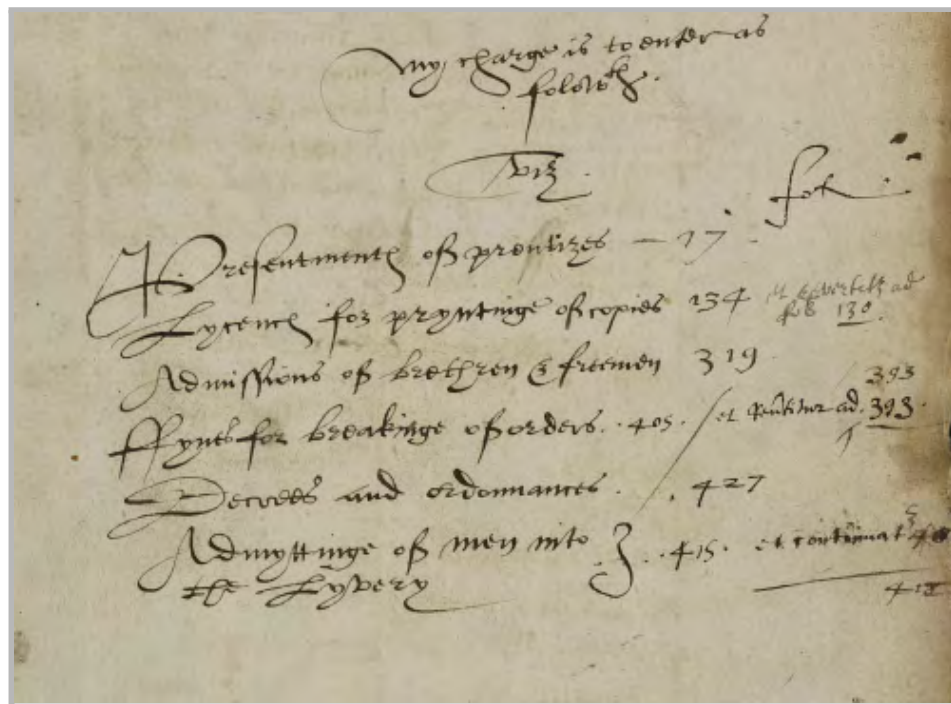 My charge is to enter as
foloweth.
viz.
fol.
Presentmentes of prentizes — 17.
Lycences for pryntinge of copies 134 et revertitur ad
fol 130.
Admissions of brethren & freemen 319
393
ffynes for breakinge of orders. .405. / et continuatur ad. 393.
Decrees and ordonnances. / . 427
Admyttinge of men into } . .415. et continuat
the Lyvery